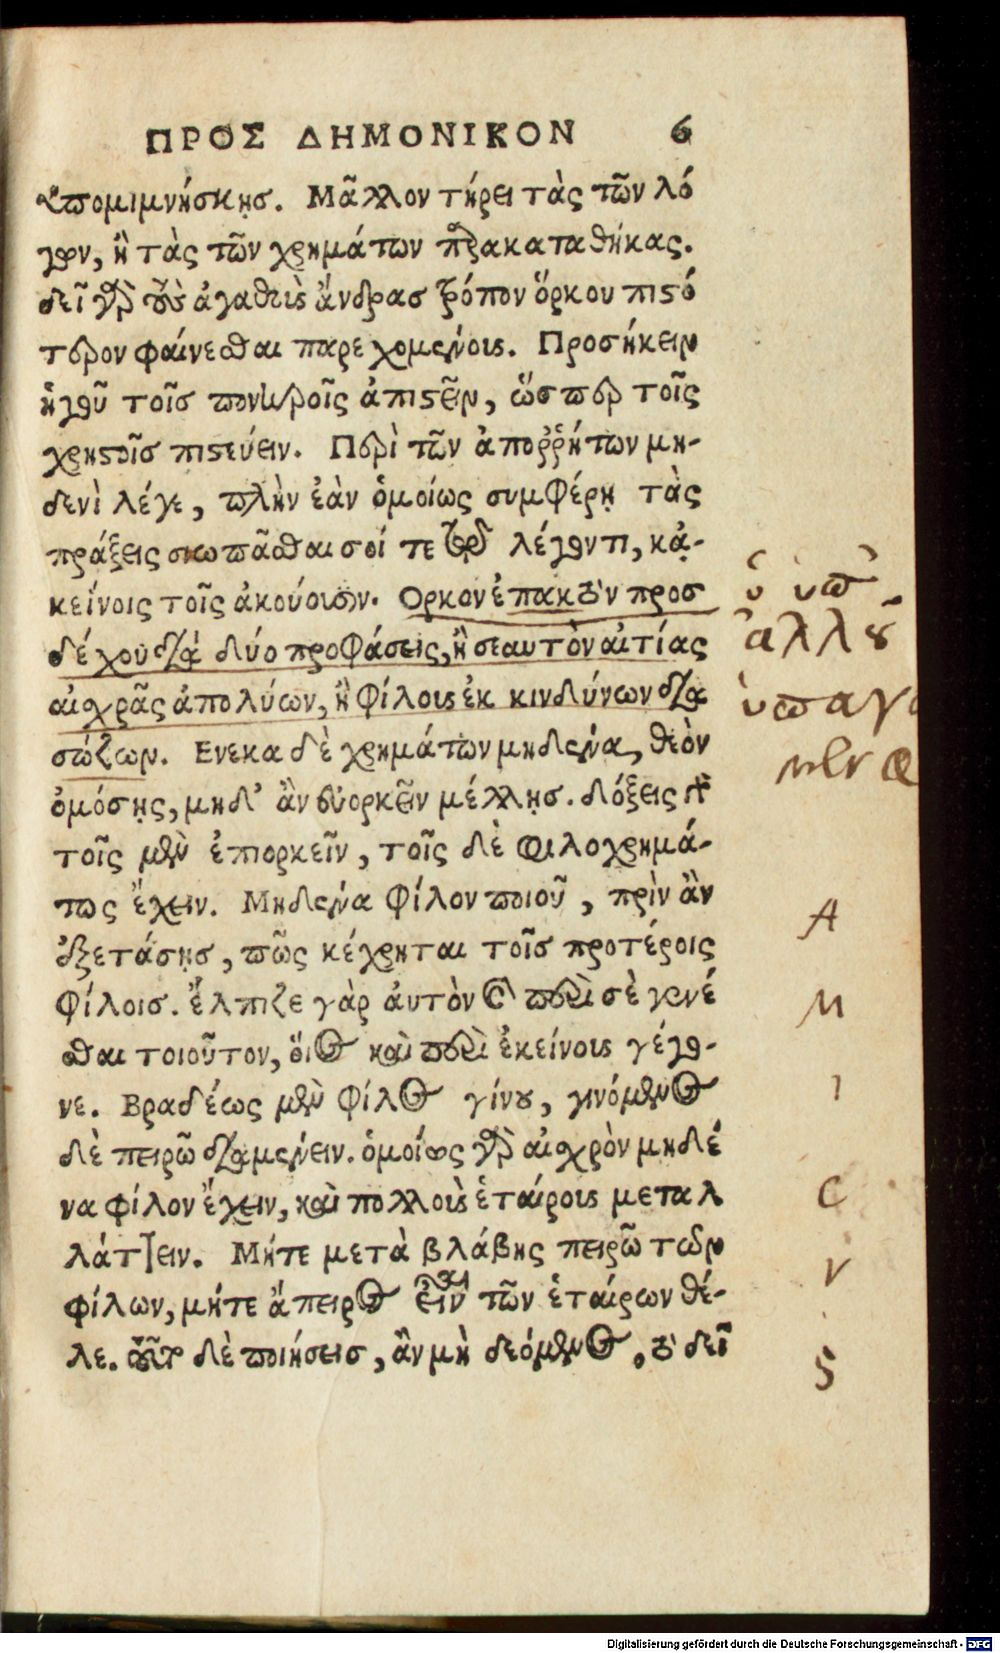 ΠΡΟΣ ΔΗΜΟΝΙΚΟΝ 6
ὑπομιμνήσκῃς. Μᾶλλον τήρει τὰς τῶν λό
γων, ἢ τὰς τῶν χρημάτων παρακαταθήκας.
δεῖ γὰρ τοὺς ἀγαθοὺς ἄνδρας τρόπον ὅρκου πιστό
τερον φαίνεσθαι παρεχομένους. Προσήκειν
ἡγοῦ τοῖς πονηροῖς ἀπιστεῖν, ὥσπερ τοῖς
χρηστοῖς πιστεύειν. Περὶ τῶν ἀποῤῥήτων μη-
δενὶ λέγε, πλὴν ἐὰν ὁμοίως συμφέρῃ τὰς
πράξεις σιωπᾶσθαι σοί τε τῷ λέγοντι, κᾀ-
κείνοις τοῖς ἀκούουσιν. Ορκον ἐπακτὸν προσ
δέχου διὰ δύο προφάσεις, ἢ σεαυτὸν αἰτίας
αἰσχρᾶς ἀπολύων, ἢ φίλους ἐκ κινδύνων δια
σώζων. Ενεκα δὲ χρημάτων μηδένα θεὸν
ὀμόσῃς, μηδ' ἂν εὐορκεῖν μέλλῃς. δόξεις γὰρ
τοῖς μὲν ἐπιορκεῖν, τοῖς δὲ φιλοχρημά-
τως ἔχειν. Μηδένα φίλον ποιοῦ, πρὶν ἂν
ἐξετάσῃς, πῶς κέχρηται τοῖς προτέροις
φίλοις. ἔλπιζε γὰρ ἀυτὸν καὶ περὶ σὲ γενέ
σθαι τοιοῦτον, ὅιος καὶ περὶ ἐκείνους γέγο-
νε. Βραδέως μὲν φίλος γίνου, γινόμενος
δὲ πειρῶ διαμένειν. ὁμοίως γὰρ αἰσχρὸν μηδέ
να φίλον ἔχειν, καὶ πολλοὺς ἑταίρους μεταλ
λάττειν. Μήτε μετὰ βλάβης πειρῶ τῶν
φίλων, μήτε ἄπειρος εἶναι τῶν ἑταίρων θέ-
λε. τοῦτο δὲ ποιήσεις, ἂν μὴ δεόμενος, τὸ δεῖ
ἀλλου
A
M
I
C
V
S
Digitalisierung gefördert durch die Deutsche Forschungsgemeinschaft - DFG